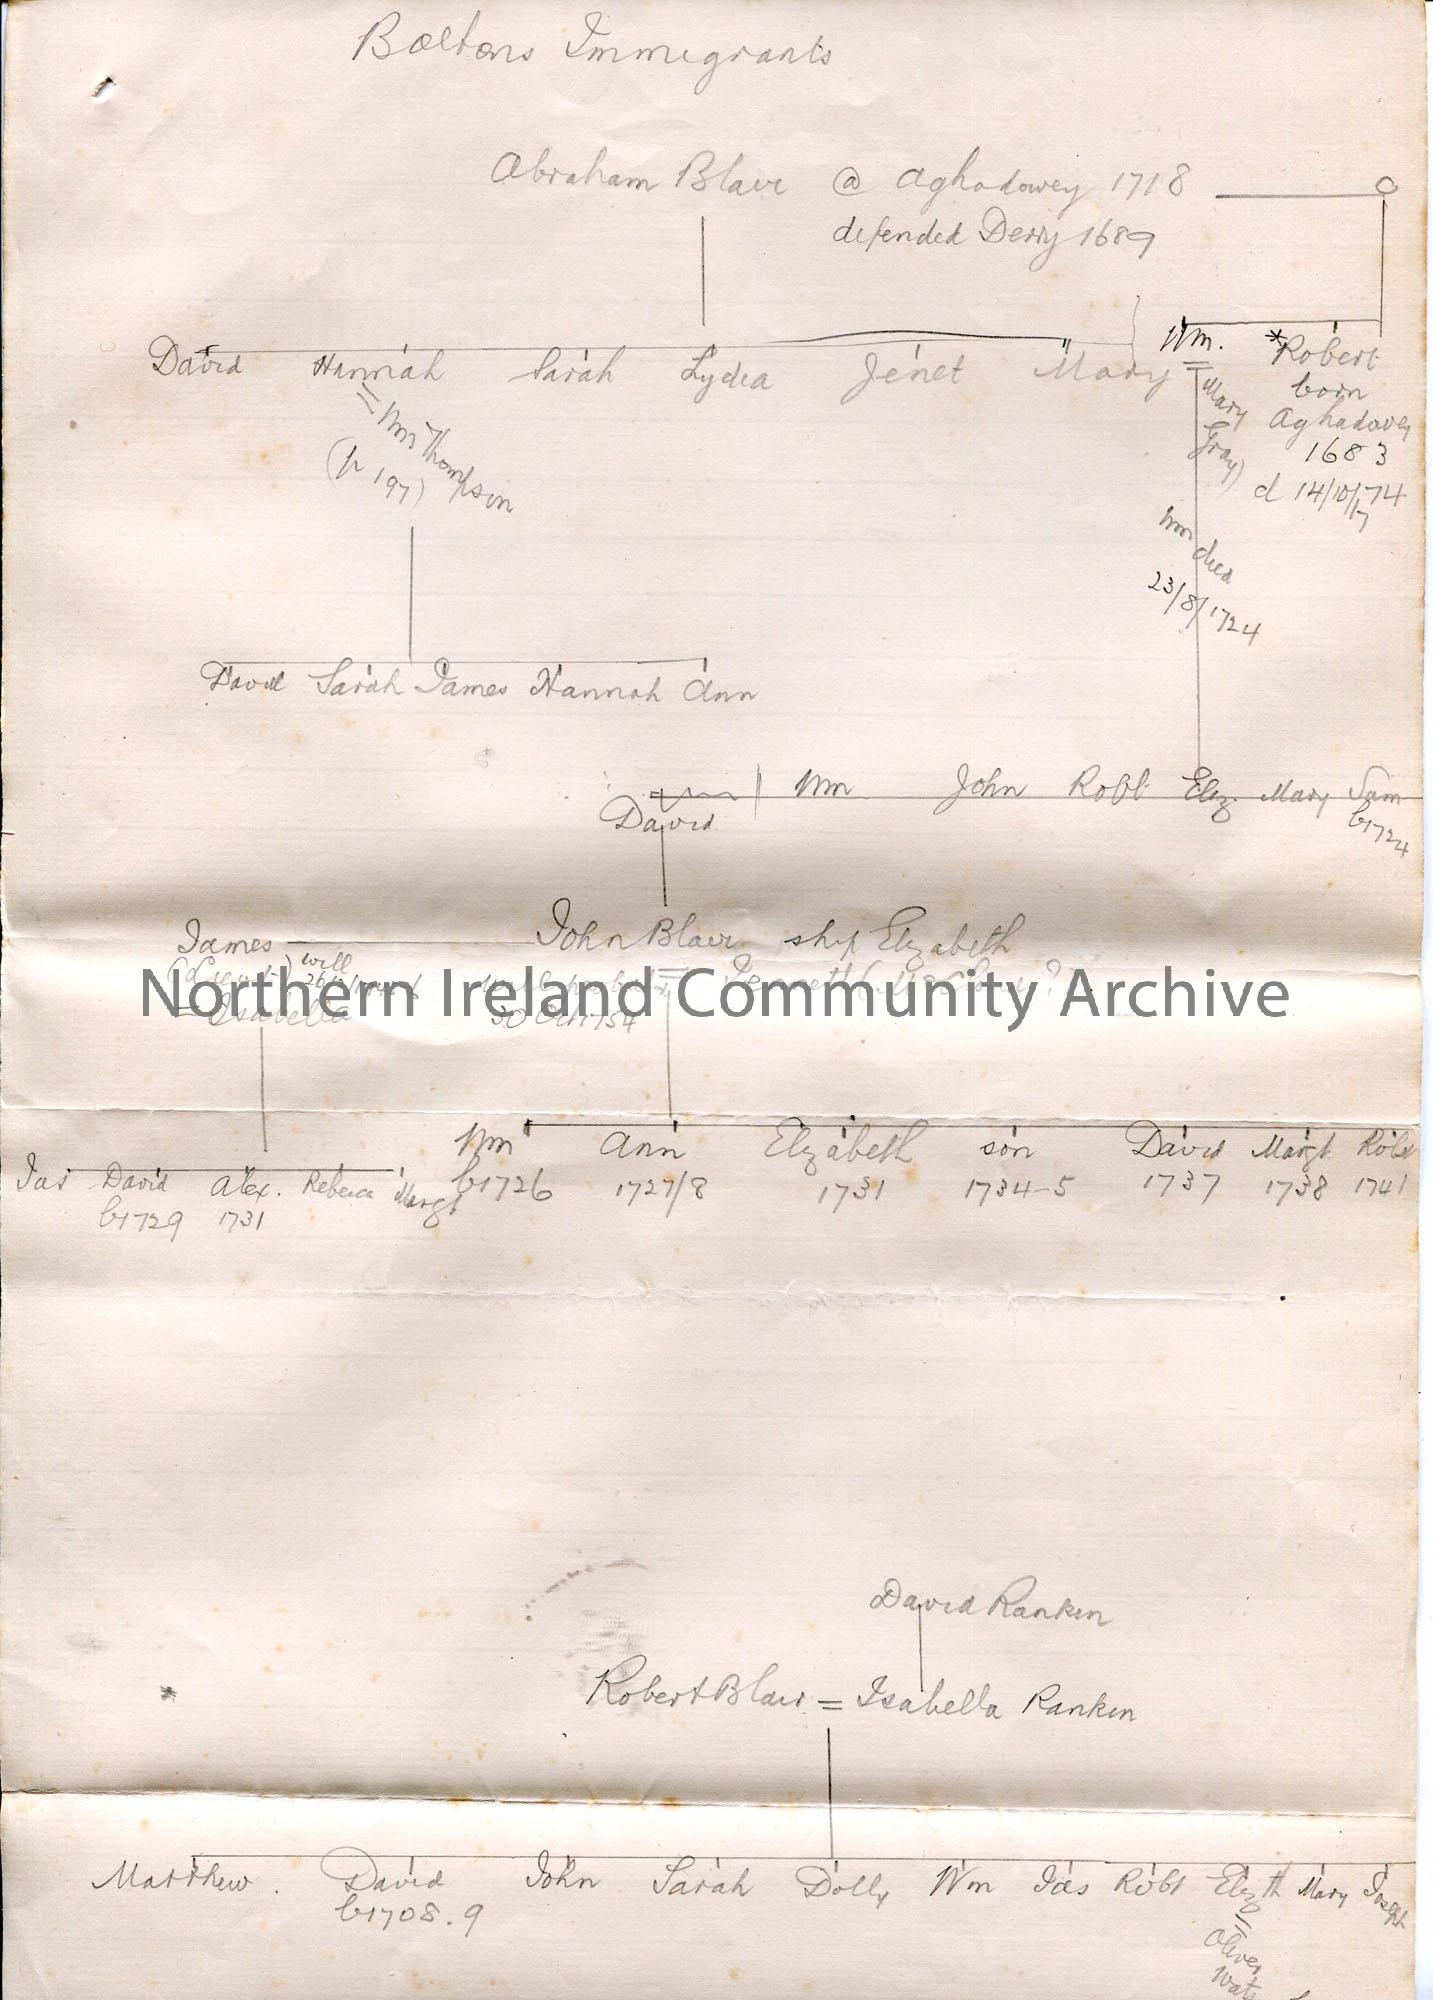 Boltons Immigrants
Abraham Blair @ Aghadowey 1718
defended Derry 1689
David Hannah Sarah Lydia Jenet Mary Wm. *Robert
= Wm Thompson
(p 197)
Mary Gray)
born
Aghadowey
1683
d 14/10/1774
Wm died
23/8/1724
David Sarah James Hannah Ann
Wm John Robt Eliz. Mary Sam
b1724
David
James John Blair ship Elizabeth
will
= Isabella 30 Oct 1754
Northern Ireland Community Archive
Wm Ann Elizabeth son David Margt Robt
b1726 1727/8 1731 1734-5 1737 1738 1741
Jas David Alex. Rebecca Margt
b1729 1731
David Rankin
Robert Blair = Isabella Rankin
Matthew. David John Sarah Dolly Wm Jas Robt Elizth Mary Joseph
b1708.9
= Oliver